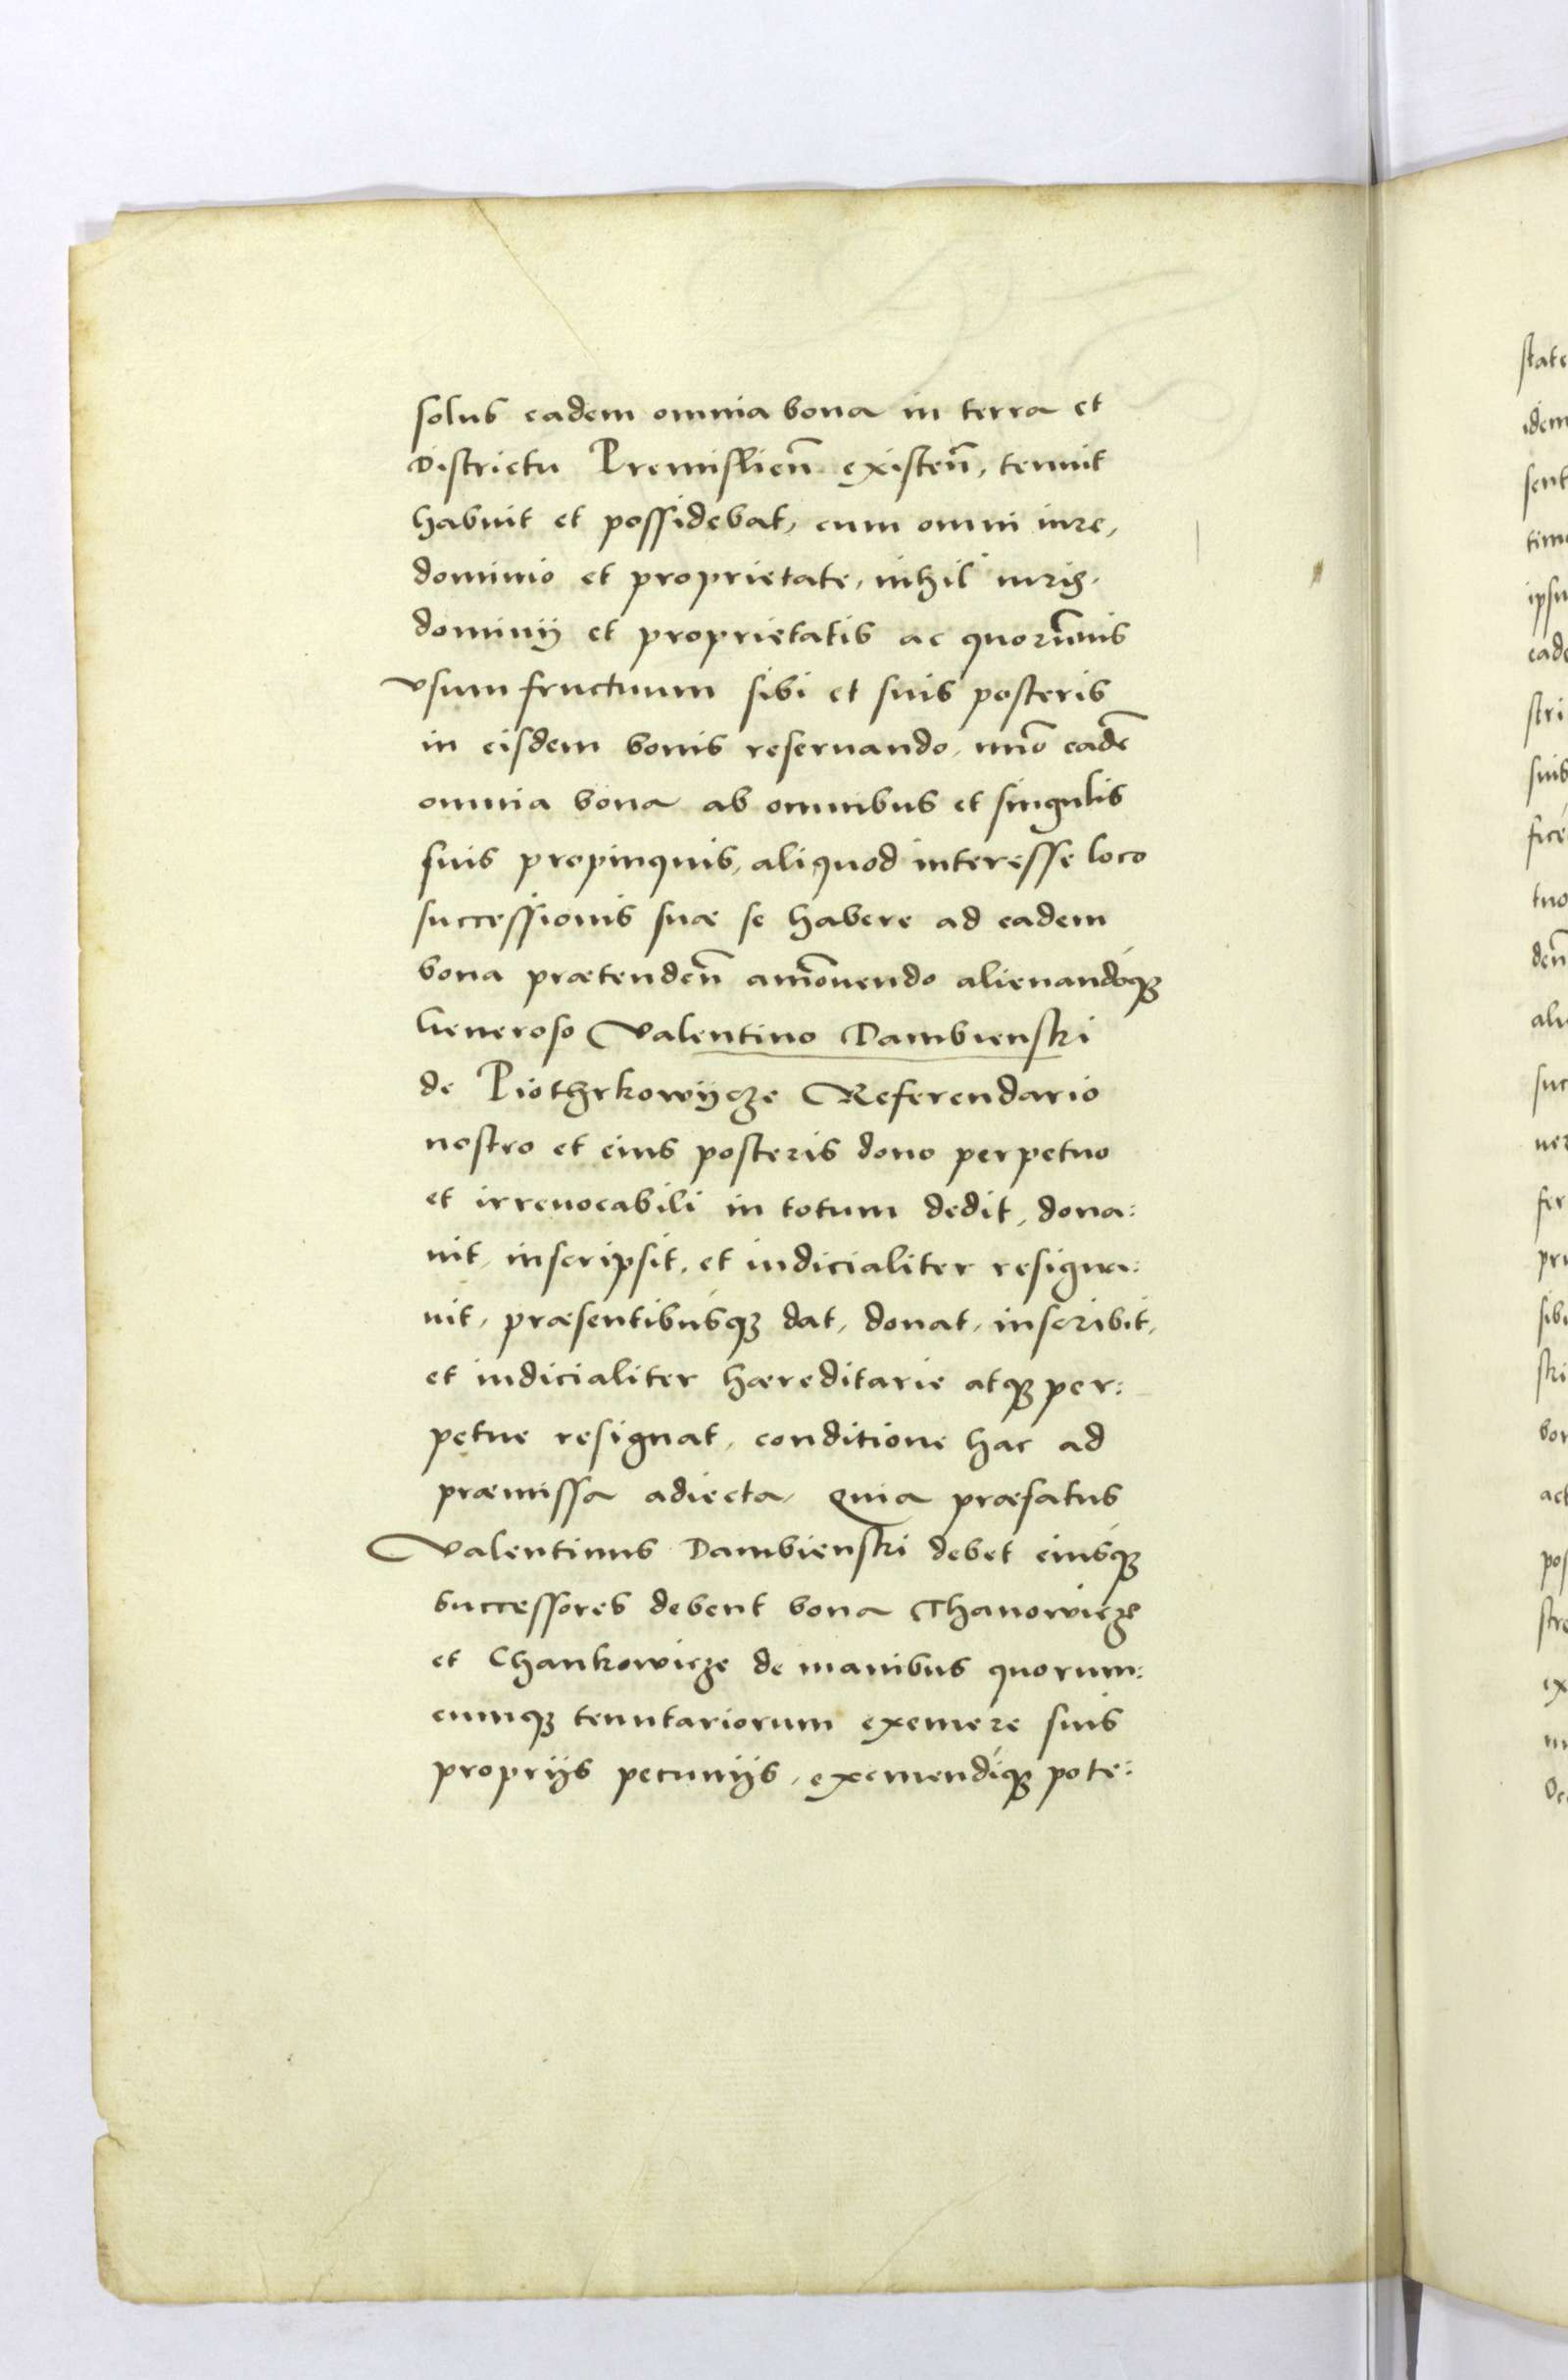 solus eadem omnia bona in terra et
Districtu Premislień existeñ, tenuit
habuit et possidebat, cum omni iure,
dominio et proprietate, nihil iuris,
dominij et proprietatis ac quorũuis
vsumfructuum sibi et suis posteris
in eisdem bonis reseruando, imõ eadẽ
omnia bona ab omnibus et singulis
suis propinquis, aliquod interesse loco
successionis suæ se habere ad eadem
bona prætendeñ amõuendo alienandoq́;
Generoso Valentino Dambienski
de Piothrkowijcze Referendario
nostro et eius posteris dono perpetuo
et irreuocabili in totum dedit, dona:
uit, inscripsit, et iudicialiter resigna:
uit, præsentibusq́; dat, donat, inscribit,
et iudicialiter hæreditarie atq; per:
petue resignat, conditione hac ad
præmissa adiecta, Quia præfatus
Valentinus Dambienski debet eiusq́;
successores debent bona Thanowicze
et Chankowicze de manibus quorum:
cumq; tenutariorum exemere suis
proprijs pecunijs, exemendiq́; pote:
state
idem
sent
ipsu
stri
suis
deñ